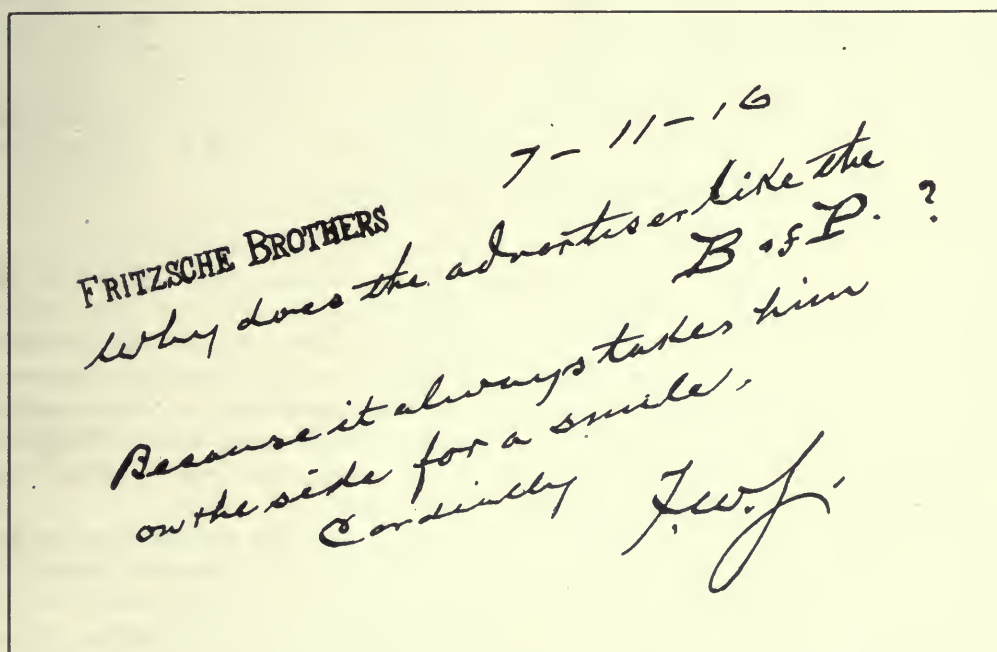 7-11-16
FRITZSCHE BROTHERS
Why does the advertiser like the
B of P. ?
Because it always takes him
on the side for a smile.
Cordially F.W.J.